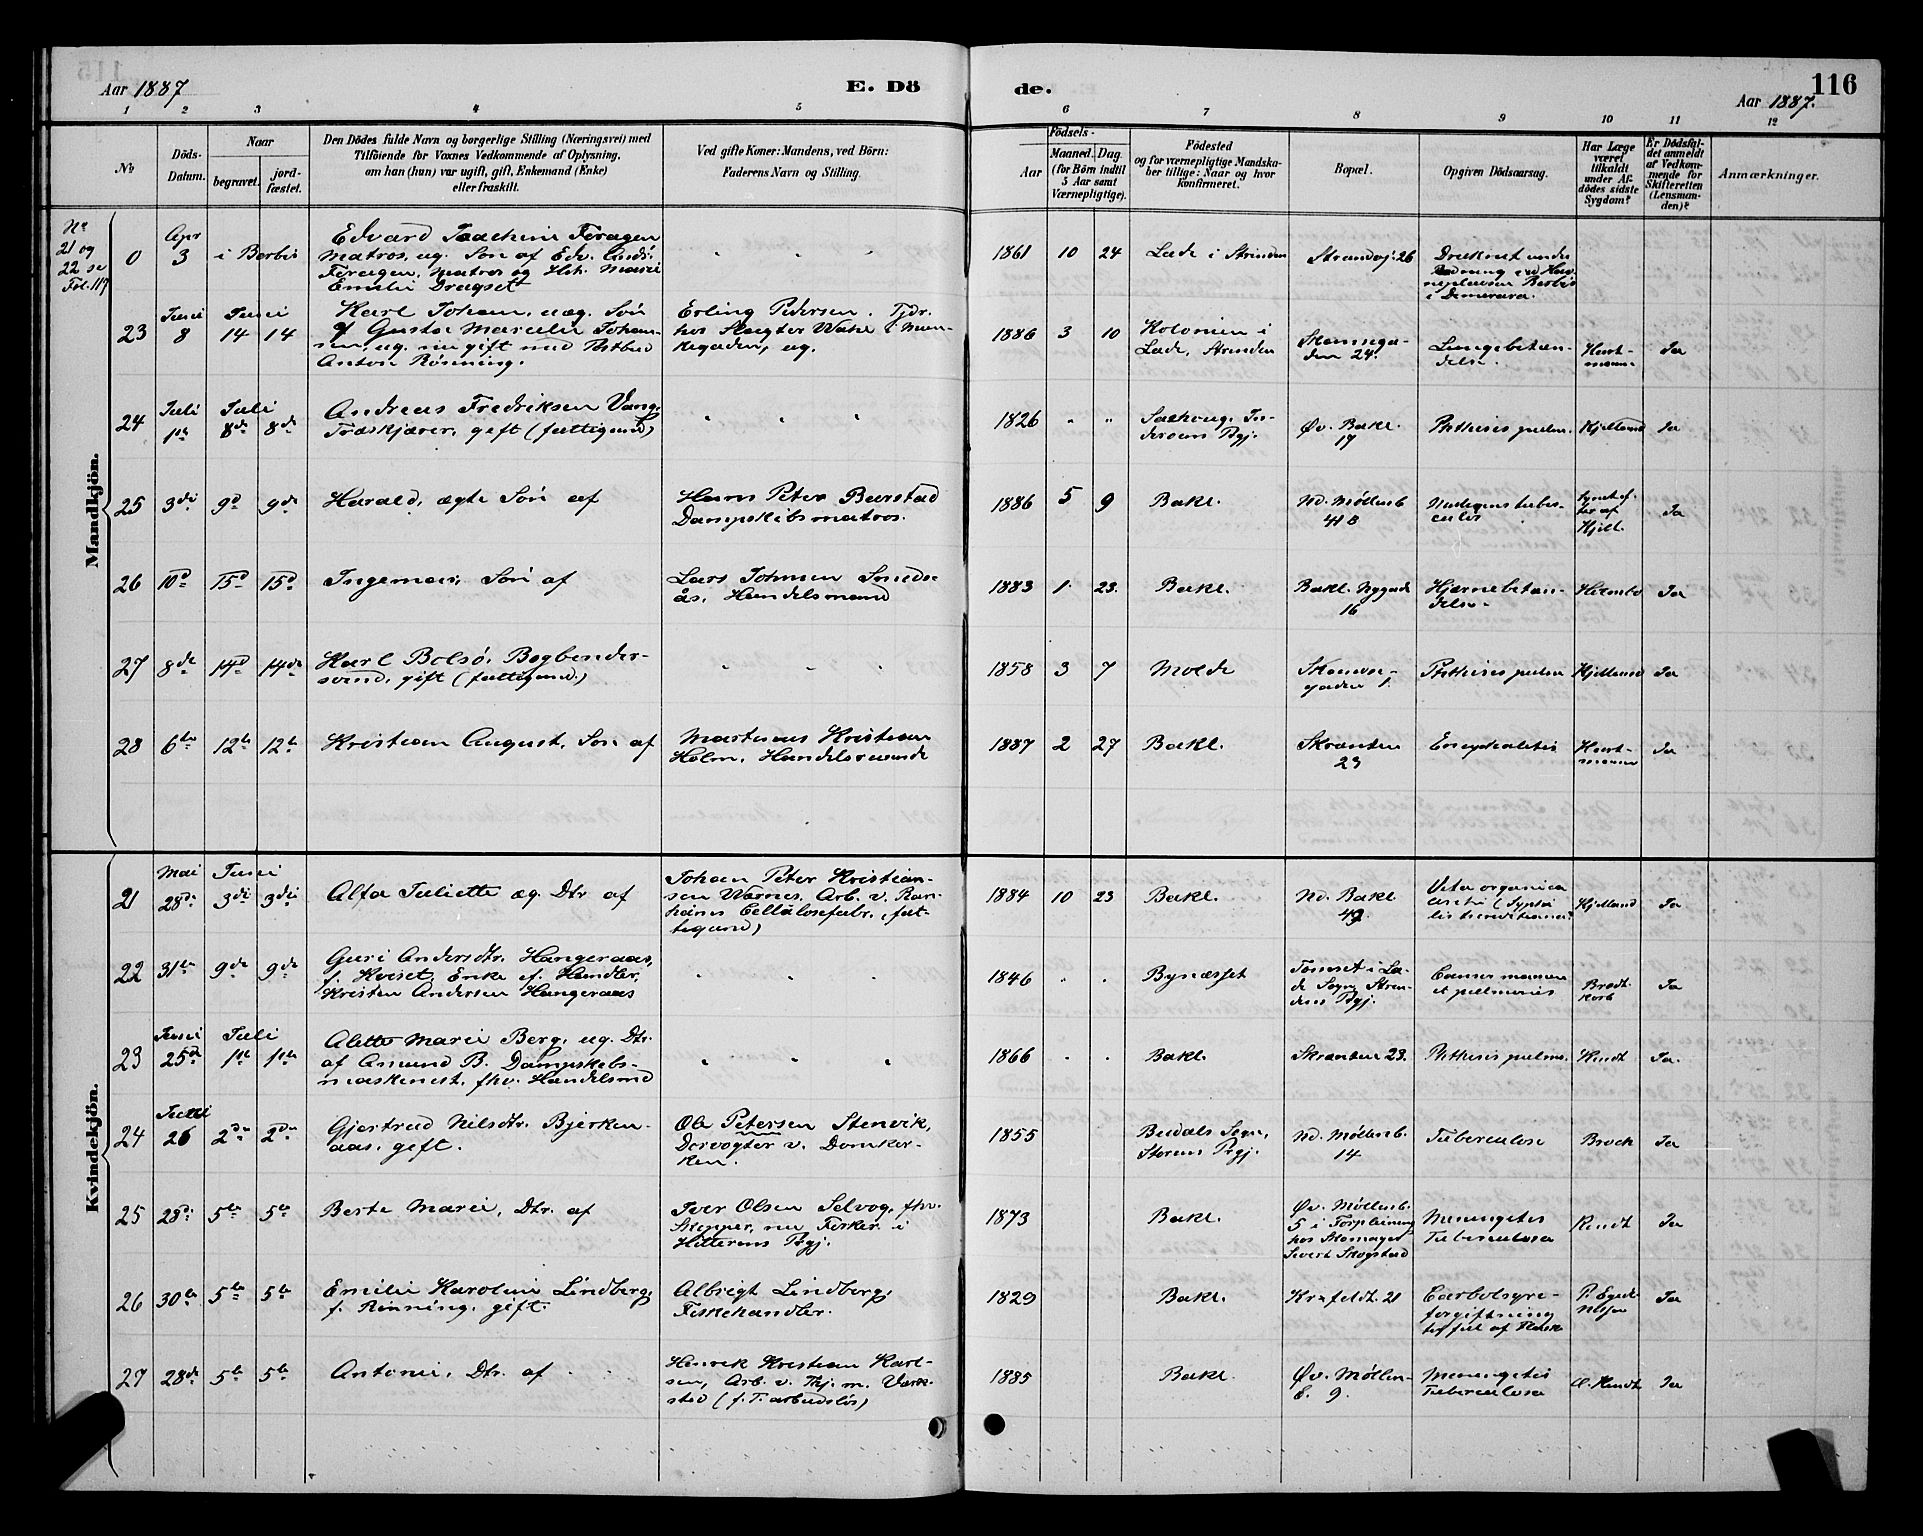 115
Aar 1887
E. Dö
de.
116
Aar 1887.
1 2 3 4 5 6 7 8 9 10 11 12
No.
Döds-
Datum.
Naar
begravet.
jord-
fæstet.
Den Dödes fulde Navn og borgerlige Stilling (Næringsvei) med
Tilföiende for Voxnes Vedkommende af Oplysning,
om han (hun) var ugift, gift, Enkemand (Enke)
eller fraskilt.
Ved gifte Koner: Mandens, ved Börn:
Faderens Navn og Stilling.
Födsels-
Aar
Maaned. Dag.
(for Börn indtil
5 Aar samt
Værnepligtige).
Födested
og for værnepligtige Mandska-
ber tillige: Naar og hvor
konfirmeret.
Bopæl.
Opgiven Dödsaarsag.
Har Læge
været
tilkaldt
under Af-
dödes sidste
Sygdom?
Er Dödsfal-
det anmeldt
af Vedkom-
mende for
Skifteretten
(Lensman-
den)?
Anmærkninger.
Mandkjön.
No
21 og
22 se
Fol. 117
0
Apr
3
i Berbis
Edvard Joachim Foragen
Matros, ug. Sön af Edv. Andr.
Foragen, Matros og Hst. Marie
Emilie Dragset
1861 10 24
Lade i Strinden
Strandvj. 26
Druknet under
Badning ved Hav-
neplassen Berbis
i Demerara.
23
Juni
8
Juni
14 14
Karl Johan, uæg. Sön
af Gusta Marcelie Johan-
sen, ug. nu gift med Postbud
Anton Rönning.
Erling Pedersen. Tjdr.
hos Slagter Wahl i Mun-
kegaden, ug.
1886 3 10
Kolonien i
Lade, Strinden
Stennega-
den 24.
Lungebetæn-
delse.
Hart-
mann
Ja
24
Juli
1ste
Juli
8de 8de
Andreas Fredriksen Vang,
Træskjærer, gift (fattigund)
1826
Sakshaug, In-
deröens Pgj.
Öv. Bakl.
17
Phthisis pulm.
Kjelland
Ja
25 3die 9de 9de
Harald, ægte Sön af
Hans Peter Burstad
Dampskibsmatros.
1886 5 9
Bakl.
Nd. Möllenb
41 B
Meningens tuber-
culös
synet ef-
ter af
Kjell.
Ja
26 10de 15de 15de
Ingeman, Sön af
Lars Johnsen Smeds-
ås, Handelsmand
1883 1 23.
Bakl.
Bakl. Nygade
16
Hjærnebetæn-
delse.
Ja
27 8de 14de 14de
Karl Bolsö, Bogbinder-
svend, gift (fattigund.)
1858 3 7
Molde
Stenne-
gaden 1.
Phthisis pulm
Kjelland
Ja
28 6te 12te 12te
Kristian August, Sön af
Martinus Kristian
Holm, Handelsmand
1887 2 27
Bakl.
Skrænten
23
Encephalitis
Hart-
mann
Ja
Kvindekjön.
21
Mai
28de
Juni
3die 3die
Alfa Juliette æg. Dtr af
Johan Peter Kristian-
sen Warnes, Arb. v. Ran-
heims Cellulosefabr., fat-
tigund)
1884 10 23
Bakl.
Nd. Bakl
49
Kjelland
Ja
22 31te 9de 9de
Guri Andersdtr. Hangeraas,
f. Kviset, Enke ef. Handler
Kristen Andersen Hangeraas
1846
Bynæsset
Tonset i La-
de Sogn, Strin-
dens Pgj.
Cancer mammæ
et pulmonis
Brodt-
korb
Ja
23
Juni
25de
Juli
1ste 1ste
Alette Marie Berg, ug. Dtr.
af Amund B. Dampskibs-
maskinist, fhv. Handelsmd
1866
Bakl.
Skrænten 23.
Phthisis pulm.
Kindt
Ja.
24
Juni
26 2den 2den
Gjertrud Nilsdtr. Bjerken-
aas, gift.
Ole Petersen Stenvik,
Dörvogter v. Domkir-
ken.
1855
Budals Sogn,
Störens Pgj.
Nd. Möllenb.
14
Tuberculose
Broch
Ja
25 28de 5te 5te
Berte Marie, Dtr. af
Iver Olsen Selvog, fhv.
Skipper, nu Fisker i
Hitterens Pgj.
1873
Bakl.
Öv. Möllenb.
5 i Forpleining
hos Skomager
Sivert Skogstad
Meningitis
Tuberculosa
Kindt
Ja
26 30te 5te 5te
Emilie Karoline Lindberg,
f. Rönning, gift.
Albrigt Lindberg,
Fiskehandler.
1829
Bakl.
Krafeldt. 21
Carbolsyre-
forgiftning
Ja
27 28de 5te 5te
Antonie, Dtr. af
Henrik Kristian Karl-
sen, Arb. v. Thj. m. Værk-
sted (f. T. arbeidslös)
1885
Bakl.
Öv. Möllen-
b. 9.
Meningitis
Tuberculosa
O. Kindt
Ja